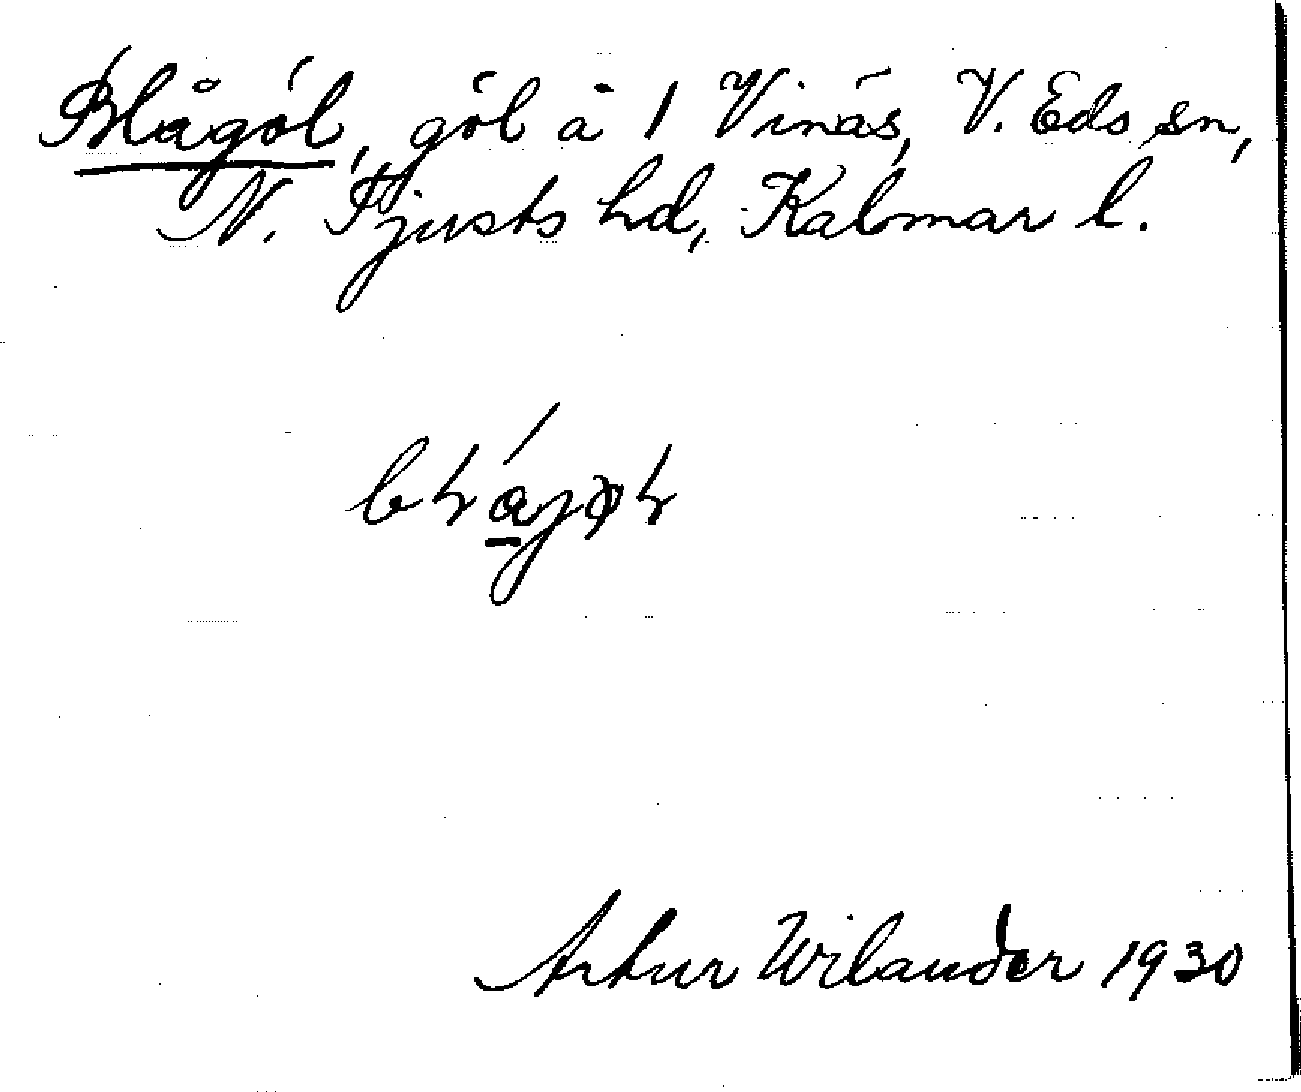 Blågöl, göl å 1 Vinäs, V. Eds sn,
N. Tjusts hd, Kalmar l.
Artur Wilander 1930